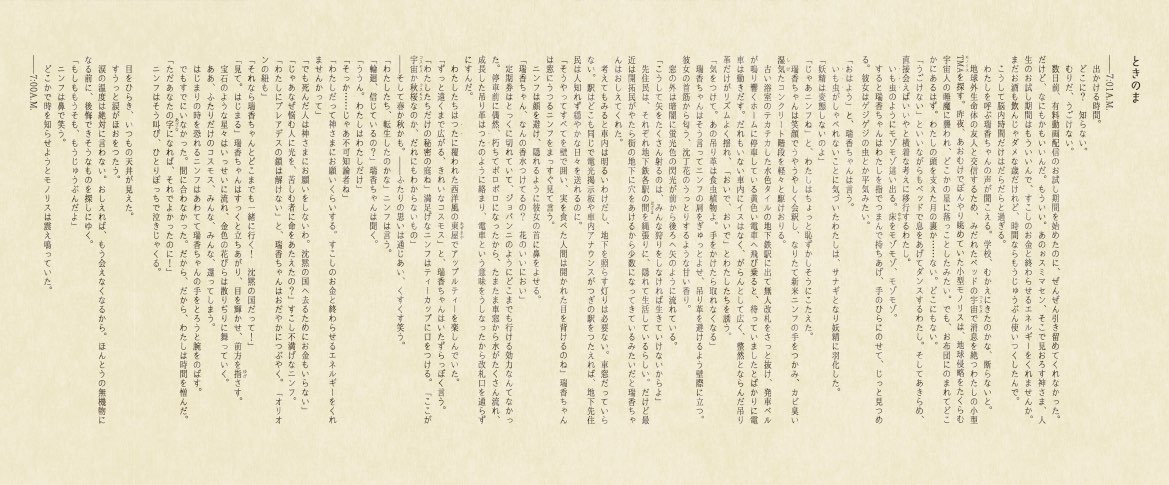 ときのま
――7:01A.M.
出かける時間。
どこに? 知らない。
むりだ、うごけない。
数日前、有料動画配信のお試し期間を始めたのに、ぜんぜん引き留めてくれなかった。
だけど、なにもかもいいんだ。もういい。あのぉスミマセン、そこで見おろす神さま、人
生のお試し期間はもういいんで、すこしのお金と終わらせるエネルギーをくれませんか。
まだお酒も飲んじゃダメな歳だけれど、時間ならもうじゅうぶん使いつくしたんで。
こうして脳内時間だけはだらだらと過ぎる。
わたしを呼ぶ瑞香ちゃんの声が聞こえる。学校、むかえにきたのかな、断らないと。
地球外生命体の友人と交信するため、みだれたベッドの宇宙で消息を絶つわたしの小型
TMAを探す。昨夜、あおむけでぼんやり眺めていた小型モノリスは、地球侵略をたくらむ
宇宙人の悪魔に襲われ、どこかの星に落っことしたかもしれない。でも、お布団にのまれてどこ
かにあるはず、わたしの頭を支えた月の裏か……ない。どこにもない。
「うごけない」といいながらもベッドで息をあげてダンスするわたし。そしてあきらめ、
直接会えばいいやと横着な考えに移行するわたし。
いも虫のようにモゾモゾ這い出る。床をモゾモゾ、モゾモゾ。
すると瑞香ちゃんは、わたしを指でつまんで持ちあげ、手のひらにのせて、じっと見つめ
る。彼女はジグジグの虫とか平気みたい。
「おはよう」と、瑞香ちゃんは言う。
いも虫がしゃべれないことに気づいたわたしは、サナギとなり妖精に羽化した。
「妖精は変態しないのよ」
「じゃあニンフね」と、わたしはちょっと恥ずかしそうにこたえた。
瑞香ちゃんは笑顔でうやうやしく会釈し、なりたて新米ニンフの手をつかみ、カビ臭い
湿気たコンクリート階段を軽々と駆けおりる。
古い浴室のテカテカした水色タイルの地下鉄駅に出て無人改札をさっと抜け、発車ベル
が鳴り響くホームに停車している黄色い電車へ飛び乗ると、待っていましたとばかりに電
車は動きだす。だれもいない車内にイスはなく、がらんとして広く、整然とならんだ吊り
革だけがリズムよく揺れ、「おいで、おいで」とわたしたちを誘う。
「気をつけて、あの吊り革は食虫植物よ。手をかけたら取れなくなる」
瑞香ちゃんはそう言ってニンフの肩をぎゅっとよせ、吊り革を避けるよう壁際に立つ。
彼女の首筋から匂う、沈丁花のうっとりするような甘い香り。
窓の外は暗闇に蛍光色の閃光が前から後ろへ矢のように流れている。
「こうして矢をたくさん射るのは、みんな狩りをしなければ生きていけないからよ」
先住民は、それぞれ地下鉄各駅の間を縄張りに、隠れて生活しているらしい。だけど最
近は開拓民がやたら街の地下に穴をあけるから少数になってきているみたいだと瑞香ちゃ
んはおしえてくれた。
考えてもみると車内は明るいわけだし、地下を照らす灯りは必要ない。車窓だっていら
ない。駅はどこも同じで電光掲示板や車内アナウンスがつぎの駅をつたえれば、地下先住
民は人知れず穏やかな日々を送れるのに。
「そうやってすべてを壁で囲い、実を食べた人間は開かれた目を背けるのね」瑞香ちゃん
は窓にうつるニンフをまっすぐ見て言う。
ニンフは顔を避け、隠れるように彼女の首に鼻をよせる。
「瑞香ちゃん、なんの香水つけてるの? 花のいいにおい」
定期券はとっくに切れていて、ジョバンニのようにどこまでも行ける効力なんてなかっ
た。停車前に偶然、朽ちてボロボロになったから、たまたま車窓から水がたくさん流れ、
成長した吊り革はつたのように絡まり、電車という意味をうしなったから改札口を通らず
にすんだ。
わたしたちはつたに覆われた西洋風の東屋でアップルティーを楽しんでいた。
「ずっと遠くまで広がる、きれいなコスモス」と、瑞香ちゃんはいたずらっぽく言う。
「わたしたちだけの秘密の庭ね」満足げなニンフはティーカップに口をつける。「ここが
宇宙か秋桜なのか、だれにもわからないもの」
――そして春か秋かも。――ふたりの思いは通じあい、くすくす笑う。
「わたしたち、転生したのかな」ニンフは言う。
「輪廻、信じているの?」瑞香ちゃんは聞く。
「ううん。わたしはわたしだけ」
「そっか……じゃあ不可知論者ね」
わたしだって神さまにお願いくらいする。すこしのお金と終わらせるエネルギーをくれ
ませんかって。
「でも死んだ人は神さまにお願いをしないわ、沈黙の国へ去るためにお金もいらない」
「じゃあなぜ悩む人に光を、苦しむ者に命をあたえたの?」すこし不満げなニンフ。
「わたしにプレアデスの鎖は解けない」と、瑞香ちゃんはおだやかにつぶやく。「オリオ
ンの紐も」
「それなら瑞香ちゃんとどこまでも一緒に行く! 沈黙の国だって!」
「見て。はじまる」瑞香ちゃんはすっくと立ちあがり、目を輝かせ、前方を指さす。
宝石のような星々はいっせいに流れ、金色の花びらは散りぢりに舞っていく。
ああ、ふたりだけのコスモス、みんな、みんな、還ってしまう。
はじまりの時を恐れるニンフはあわてて瑞香ちゃんの手をとろうと腕をのばす。
でもすでにいなかった。間に合わなかった。だから、だから、わたしは時間を憎んだ。
「ただあなたの字になれば、それでよかったのに!」
ニンフはそう叫び、ひとりぼっちで泣きじゃくる。
目をひらき、いつもの天井が見えた。
すうっと涙がほおをつたう。
涙の温度は絶対に言わない。おしえれば、もう会えなくなるから。ほんとうの無機物に
なる前に、後悔できそうなものを探しにゆく。
「もしももうそも、もうじゅうぶんだよ」
ニンフは鼻で笑う。
どこかで時を知らせようとモノリスは震え鳴っていた。
――7:00A.M.